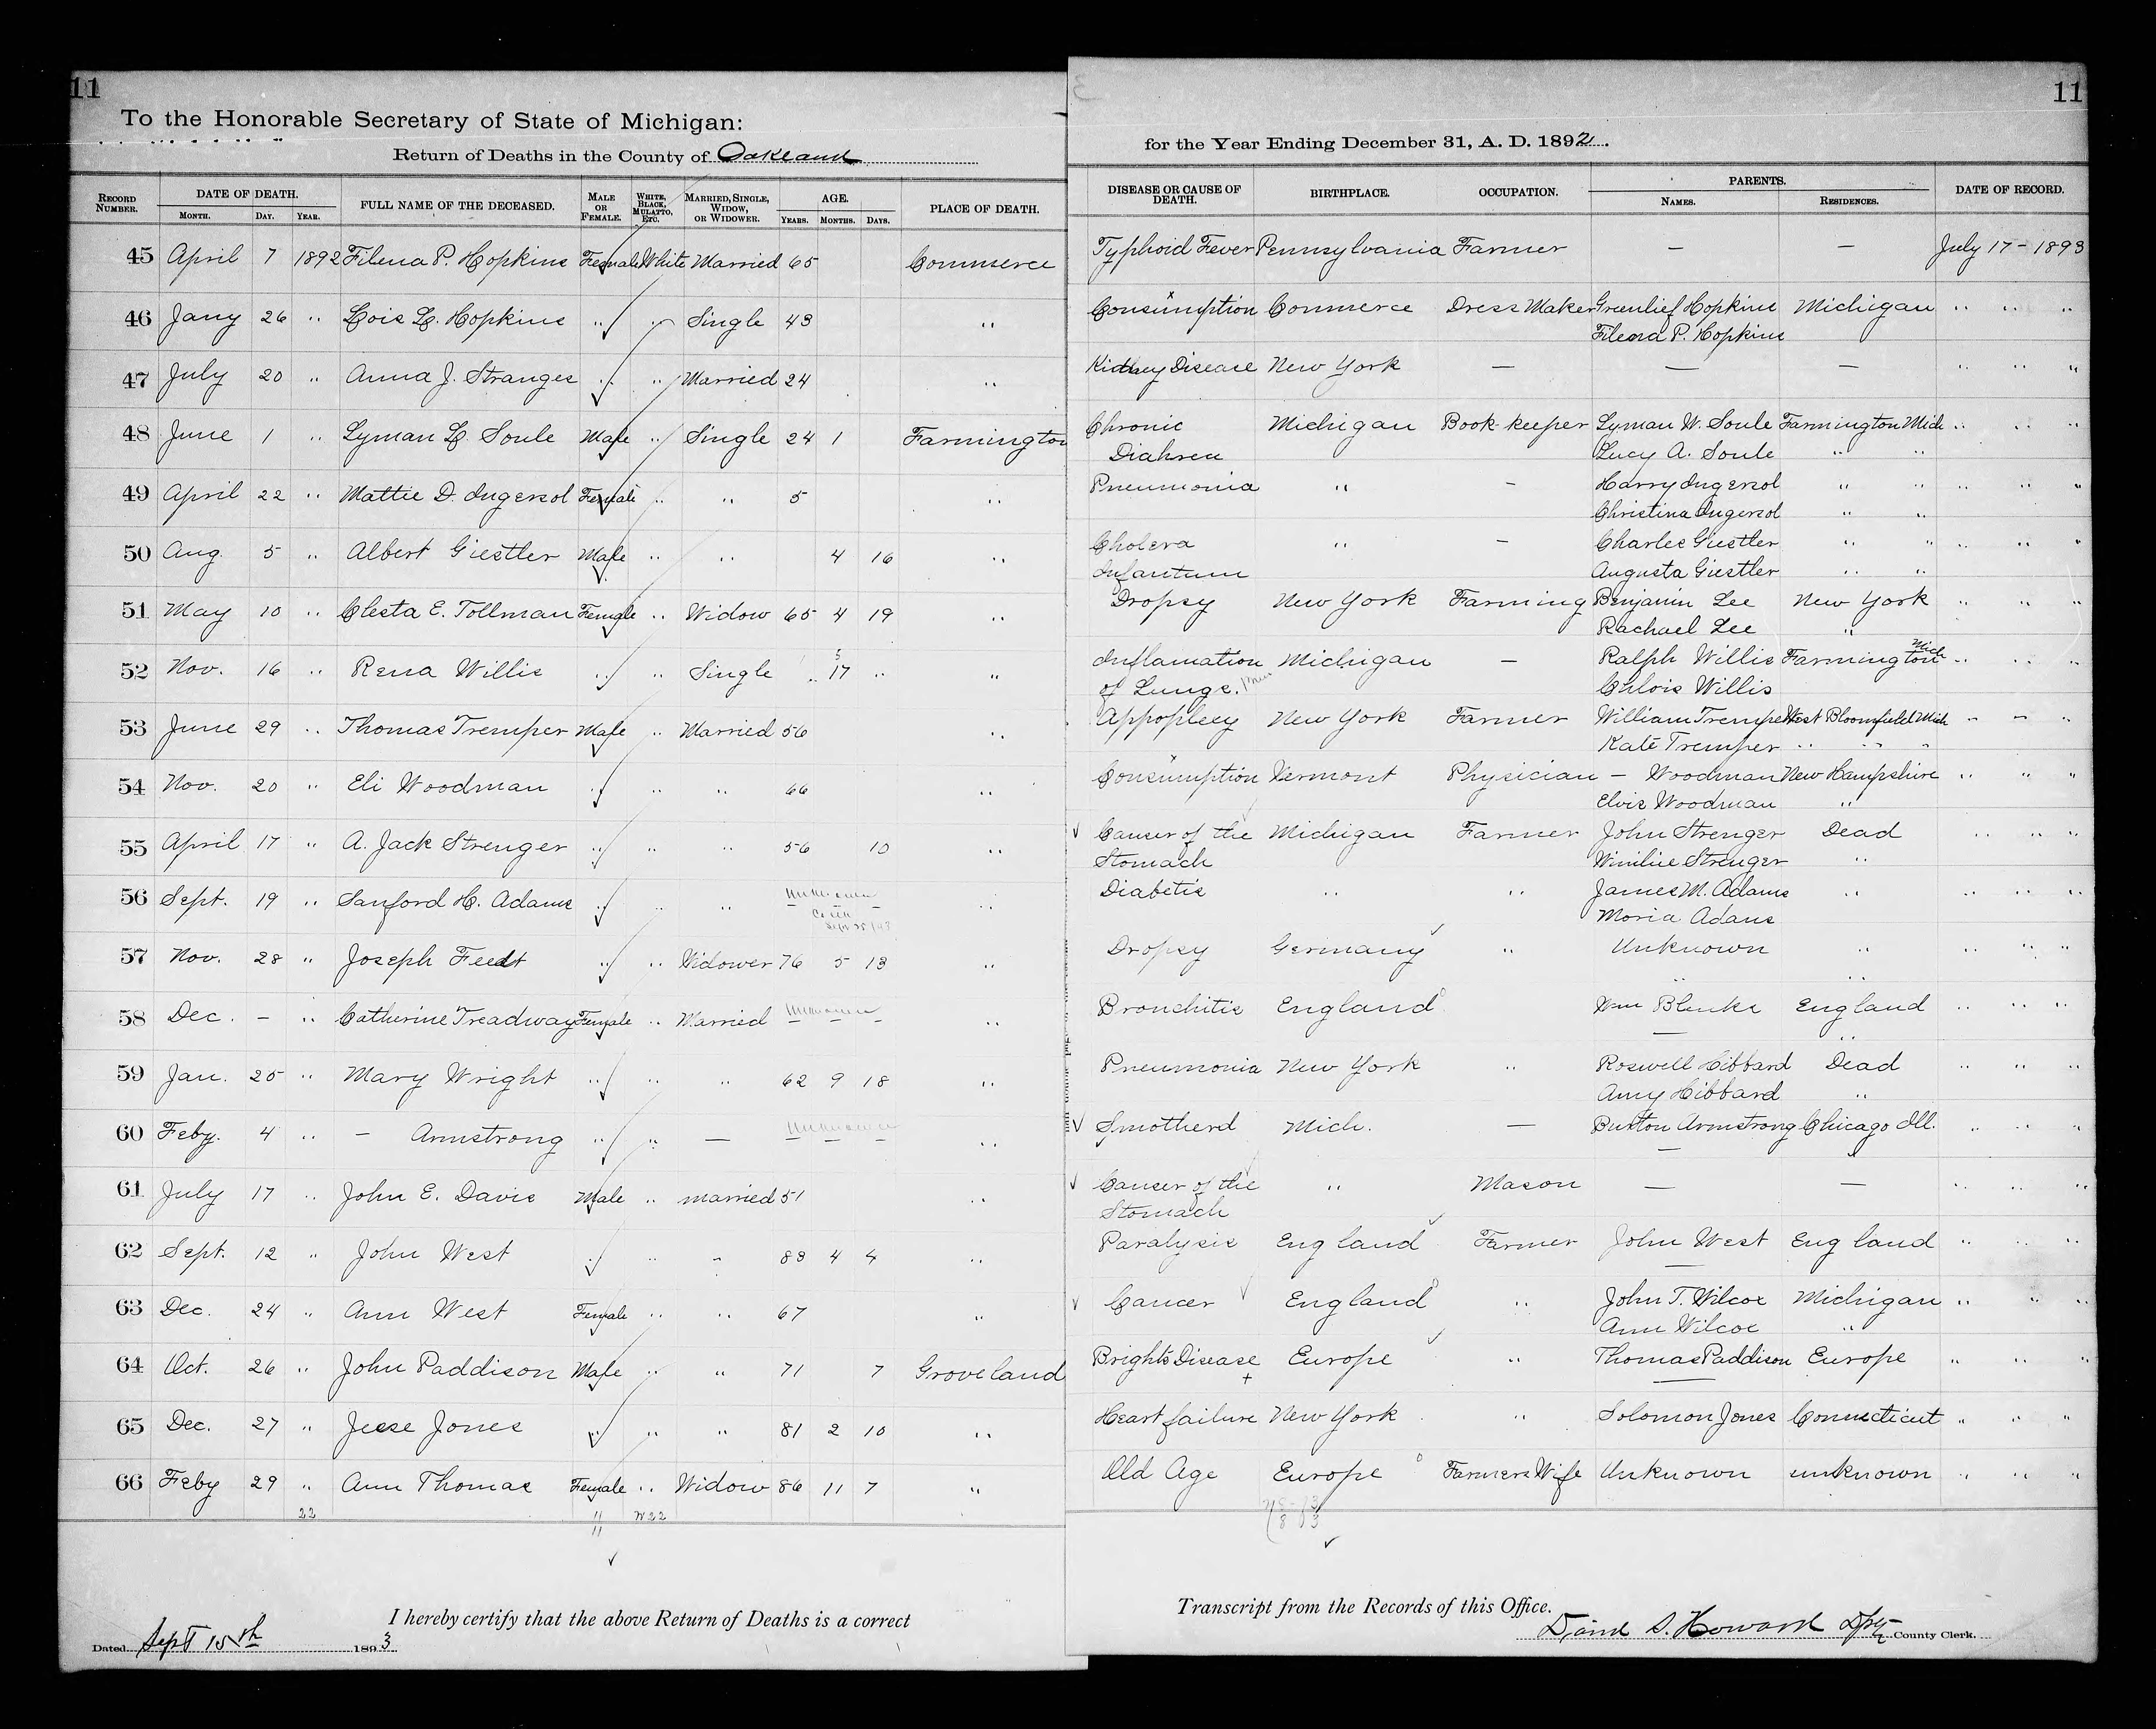 11
11
To the Honorable Secretary of State of Michigan:
Return of Deaths in the County of Oakland
for the Year Ending December 31, A. D. 1892.
RECORD NUMBER. DATE OF DEATH. MONTH. DAY. YEAR. FULL NAME OF THE DECEASED. MALE OR FEMALE. WHITE, BLACK, MULATTO, ETC. MARRIED, SINGLE, WIDOW, OR WIDOWER. AGE. YEARS. MONTHS. DAYS. PLACE OF DEATH. DISEASE OR CAUSE OF DEATH. BIRTHPLACE. OCCUPATION. PARENTS. NAMES. RESIDENCES. DATE OF RECORD.
45 April 7 1892 Filena P. Hopkins Female White Married 65 Commerce Typhoid Fever Pennsylvania Farmer — — July 17 - 1893
46 Jany 26 " Lois L. Hopkins " " Single 43 " Consumption Commerce Dress Maker Greenlief Hopkins Michigan " " "
Filena P. Hopkins
47 July 20 " Anna J. Stranges " " Married 24 " Kidney Disease New York — — — " " "
48 June 1 " Lyman L. Soule Male " Single 24 1 Farmington Chronic Michigan Book-keeper Lyman W. Soule Farmington Mich " " "
Diahrea Lucy A. Soule " "
49 April 22 " Mattie D. Ingersol Female " " 5 " Pneumonia " — Harry Ingersol " " " " "
Christina Ingersol " "
50 Aug. 5 " Albert Giestler Male " " 4 16 " Cholera " — Charles Giestler " " " " "
Infantum Augusta Giestler " "
51 May 10 " Clesta E. Tollman Female " Widow 65 4 19 " Dropsy New York Farming Benjamin Lee New York " " "
Rachael Lee "
52 Nov. 16 " Rena Willis " " Single " 17 " " Inflamation Michigan — Ralph Willis Farmington Mich " " "
of Lungs. Chlois Willis
53 June 29 " Thomas Tremper Male " Married 56 " Appoplexy New York Farmer William Tremper West Bloomfield Mich " " "
Kate Tremper " " "
54 Nov. 20 " Eli Woodman " " " 66 " Consumption Vermont Physician — Woodman New Hampshire " " "
Elvis Woodman "
55 April 17 " A. Jack Strenger " " " 56 10 " Cancer of the Michigan Farmer John Strenger Dead " " "
Stomach Winilie Strenger "
56 Sept. 19 " Sanford H. Adams " " " — — — " Diabetis " " James M. Adams " " " "
Moria Adams
57 Nov. 28 " Joseph Feedt " " Widower 76 5 13 " Dropsy Germany " Unknown " " " "
" "
58 Dec. — " Catherine Treadway Female " Married unknown — — — " Bronchitis England Wm Blenks England " " "
— "
59 Jan. 25 " Mary Wright " " " 62 9 18 " Pneumonia New York " Roswell Hibbard Dead " " "
Amy Hibbard "
60 Feby. 4 " — Armstrong " " — unknown — — — " Smotherd Mich. — Burton Armstrong Chicago Ill. " " "
—
61 July 17 " John E. Davis Male " married 51 " Cancer of the " Mason — — " " "
Stomach
62 Sept. 12 " John West " " " 83 4 4 " Paralysis England Farmer John West England " " "
—
63 Dec. 24 " Ann West Female " " 67 " Cancer England " John T. Wilcox Michigan " " "
Ann Wilcox "
64 Oct. 26 " John Paddison Male " " 71 7 Groveland Brights Disease Europe " Thomas Paddison Europe " " "
+ —
65 Dec. 27 " Jesse Jones " " " 81 2 10 " Heart failure New York " Solomon Jones Connecticut " " "
66 Feby 29 " Ann Thomas Female " Widow 86 11 7 " Old Age Europe Farmers Wife Unknown unknown " " "
22 11 W 22
I hereby certify that the above Return of Deaths is a correct Transcript from the Records of this Office.
Dated Sept 15th 1893
David S. Howard Dpty County Clerk.